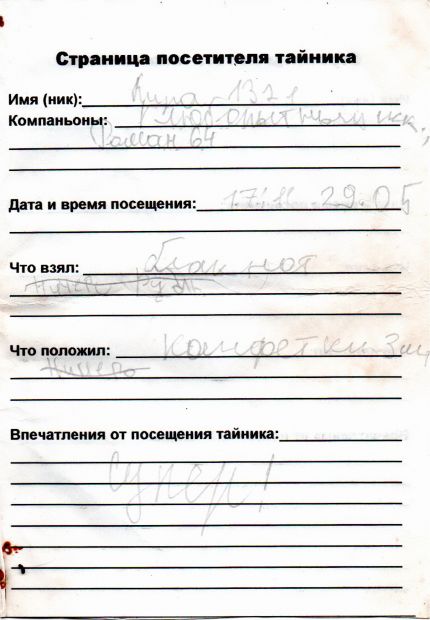 Страница посетителя тайника
Имя (ник): Лира 1321
Компаньоны: Любопытный икс,
Роман 64
Дата и время посещения: 17:11 29.05
Что взял: блакнот
Ничего
Что положил: Конфетки 3шт
Ничего
Впечатления от посещения тайника:
супер!